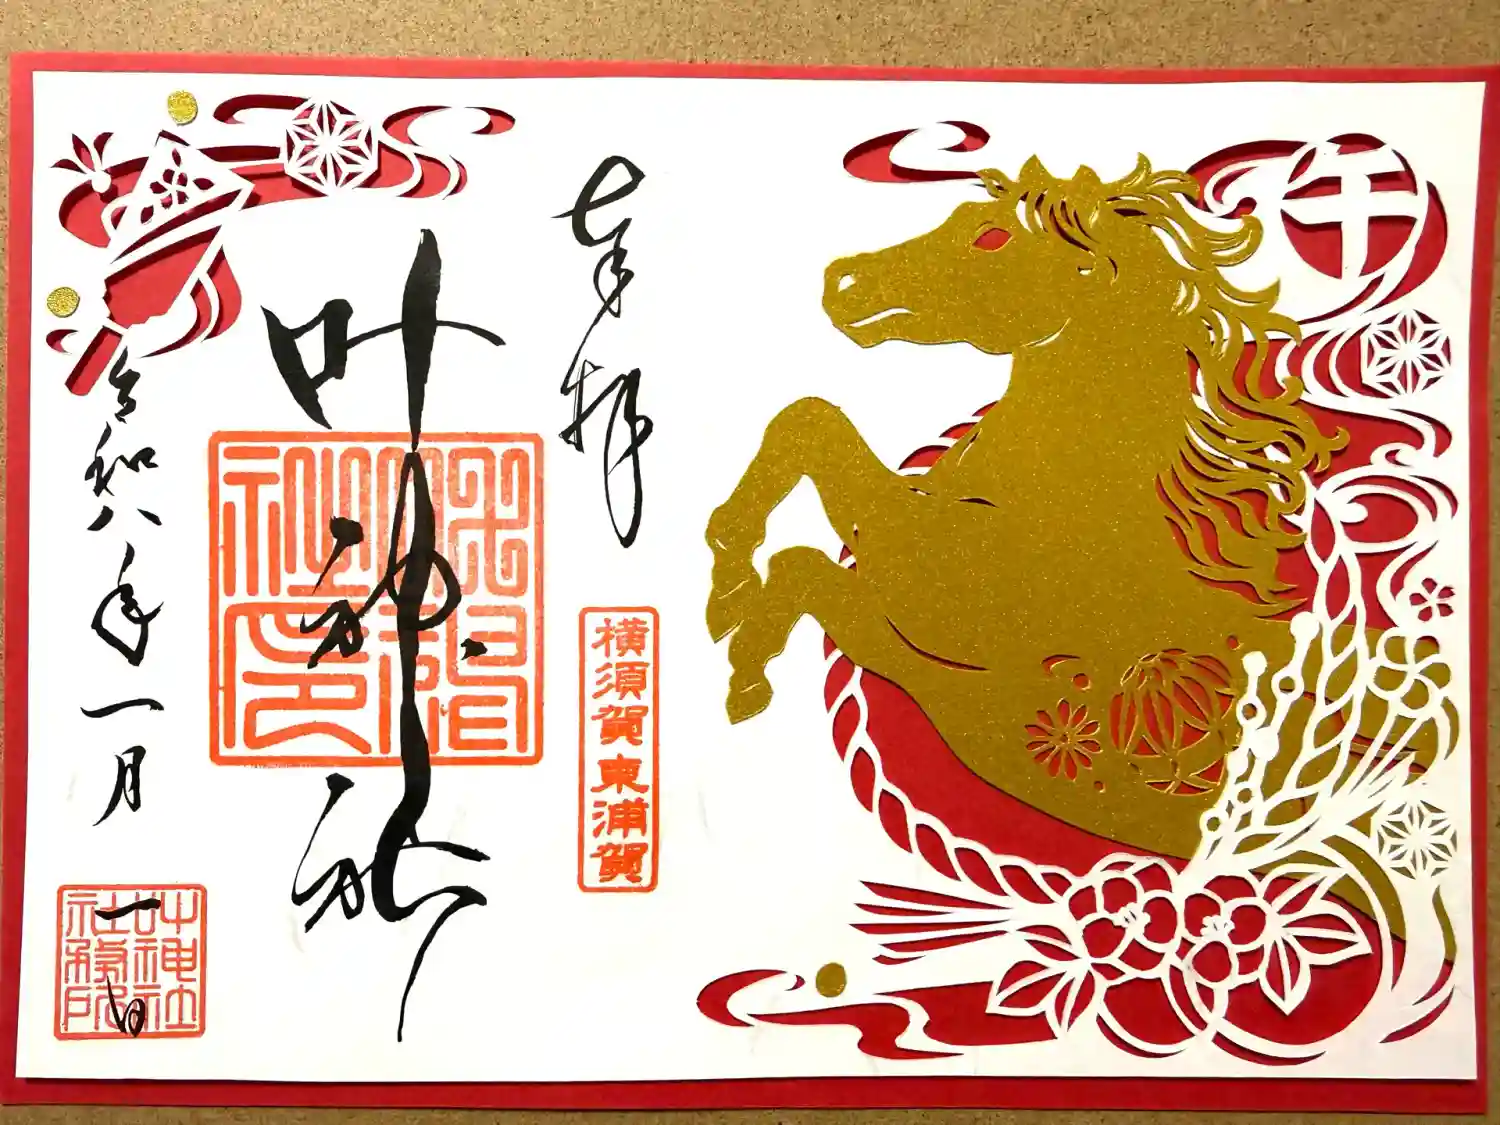 午
奉拝
横須賀東浦賀
叶神社
令和八年一月一日
叶神社
社務所